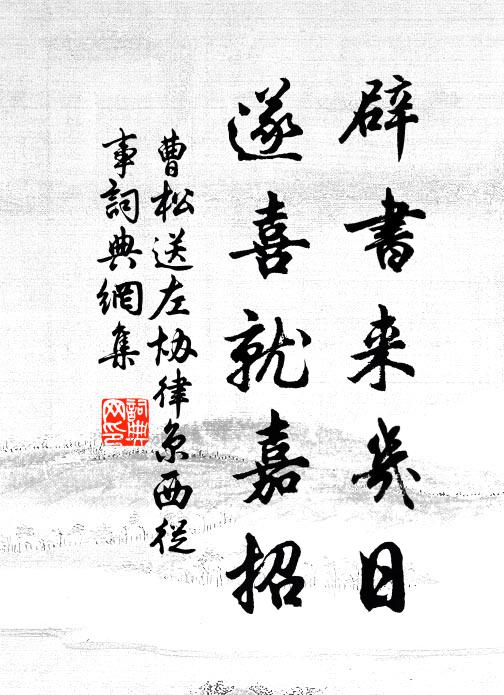 辟書来幾日
遂喜就嘉招
曹松送左協律京西從
事詞典網集
詞典
网印